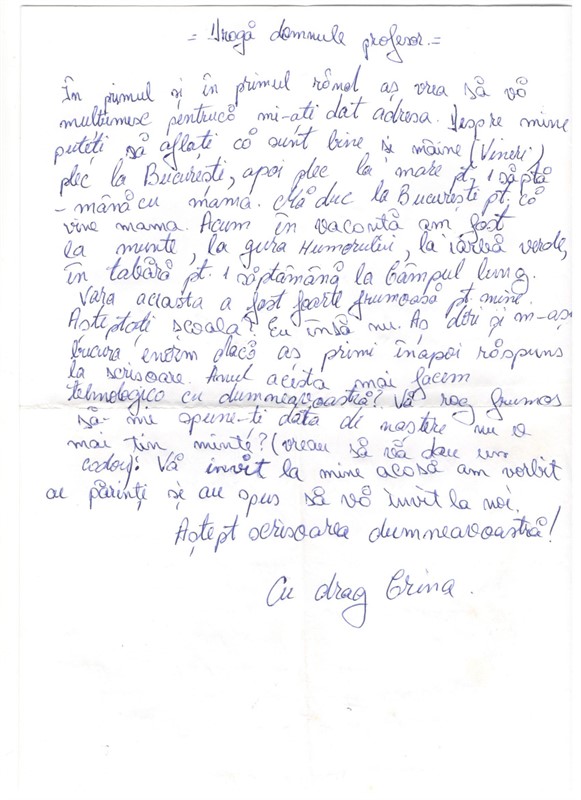 = Dragă domnule profesor. =
În primul și în primul rând aș vrea să vă
mulțumesc pentrucă mi-ați dat adresa. Despre mine
puteți să aflați că sunt bine și mâine (Vineri)
plec la București, apoi plec la mare pt. 1 săptă
- mână cu mama. Mă duc la București pt. că
vine mama. Acum în vacantă am fost
la munte, la gura Humorului, la iarbă verde,
în tabără pt. 1 săptămână la Câmpul lung.
Vara aciasta a fost foarte frumoasă pt. mine.
Așteptați școala? Eu însă nu. Aș dori și m-aș
bucura enorm dacă aș primi înapoi răspuns
la scrisoare. Anul acista mai facem
tehnologica cu dumneavoastră? Vă rog frumos
să-mi spune-ti data de naștere nu o
mai țin minte? (vreau să vă dau un
cadou! Vă invit la mine acasă am vorbit
cu părinți și au spus să vă invit la noi.
Aștept scrisoarea dumneavoastră!
Cu drag Crina.